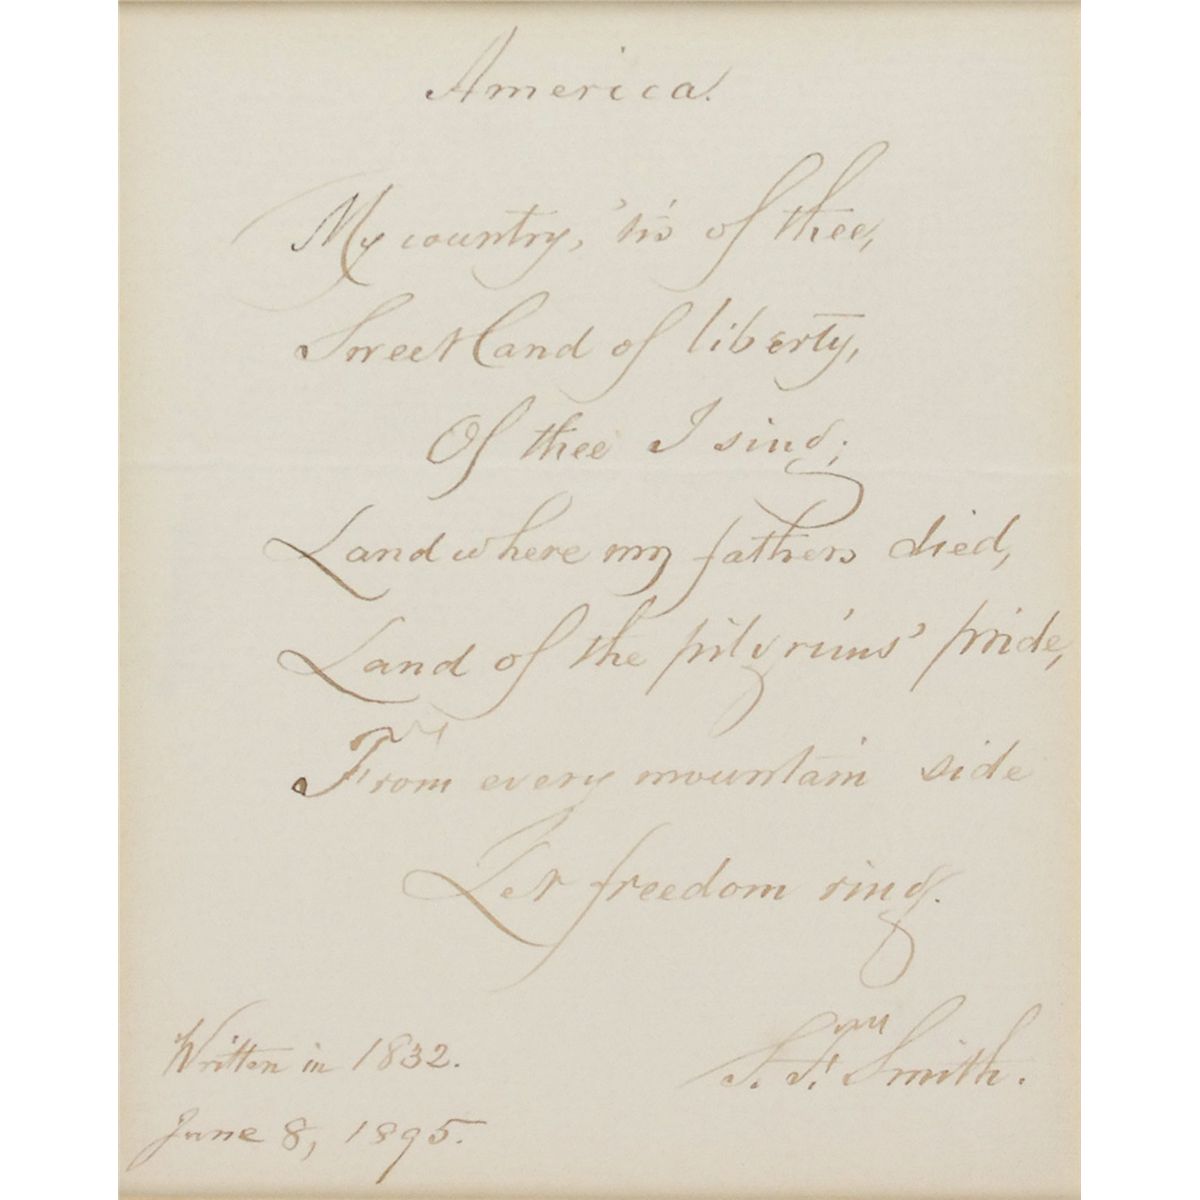 America.
My country, 'tis of thee,
Sweet land of liberty,
Of thee I sing;
Land where my fathers died,
Land of the pilgrims' pride,
From every mountain side
Let freedom ring.
S. F. Smith.
Written in 1832.
June 8, 1895.